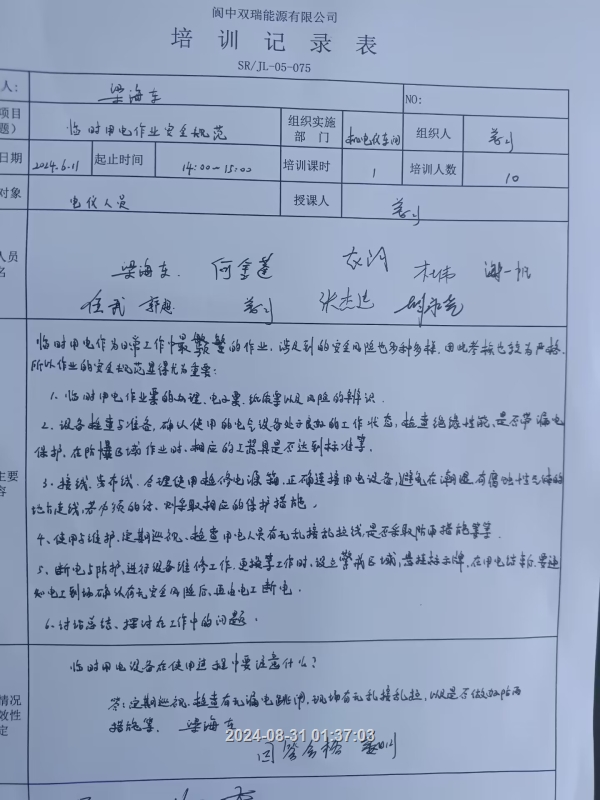 阆中双瑞能源有限公司
培训记录表
SR/JL-05-075
人: 梁海东 NO:
项目 临时用电作业安全规范 组织实施 组织人
题) 部门
日期 2024.6.11 起止时间 14:00-15:00 培训课时 1 培训人数 10
对象 电仪人员 授课人
人员 梁海东 何金莲 杜伟 谢一帆
名 任武 郭想 张杰
临时用电作为日常工作中最频繁的作业,涉及到的安全风险也多种多样,因此考核也较为严格,
所以作业的安全规范显得尤为重要:
1、临时用电作业票的办理,电工票,纸质票以及风险的辨识.
2、设备检查与准备,确认使用的电气设备处于良好的工作状态,检查绝缘性能、是否带漏电
保护,在防爆区域作业时,相应的工器具是否达到标准等.
主要 3、接线、安布线、合理使用检修电源箱、正确连接用电设备,避免在潮湿有腐蚀性气体的
容 地方走线,若必须的话,则采取相应的保护措施.
4、使用与维护,定期巡视、检查用电人员有无乱接乱拉线,是否采取防雨措施等等.
5、断电与防护,进行设备维修工作、更换等工作时、设立警戒区域,悬挂标示牌,在用电结束后,要通
知电工到场确认有无安全风险后,再由电工断电.
6、讨论总结、探讨在工作中的问题.
临时用电设备在使用过程中要注意什么?
情况 答:定期巡视、检查有无漏电跳闸,现场有无乱接乱拉,以及是否做好防雨
效性 措施等. 梁海东
定 回答合格
2024-08-31 01:37:03